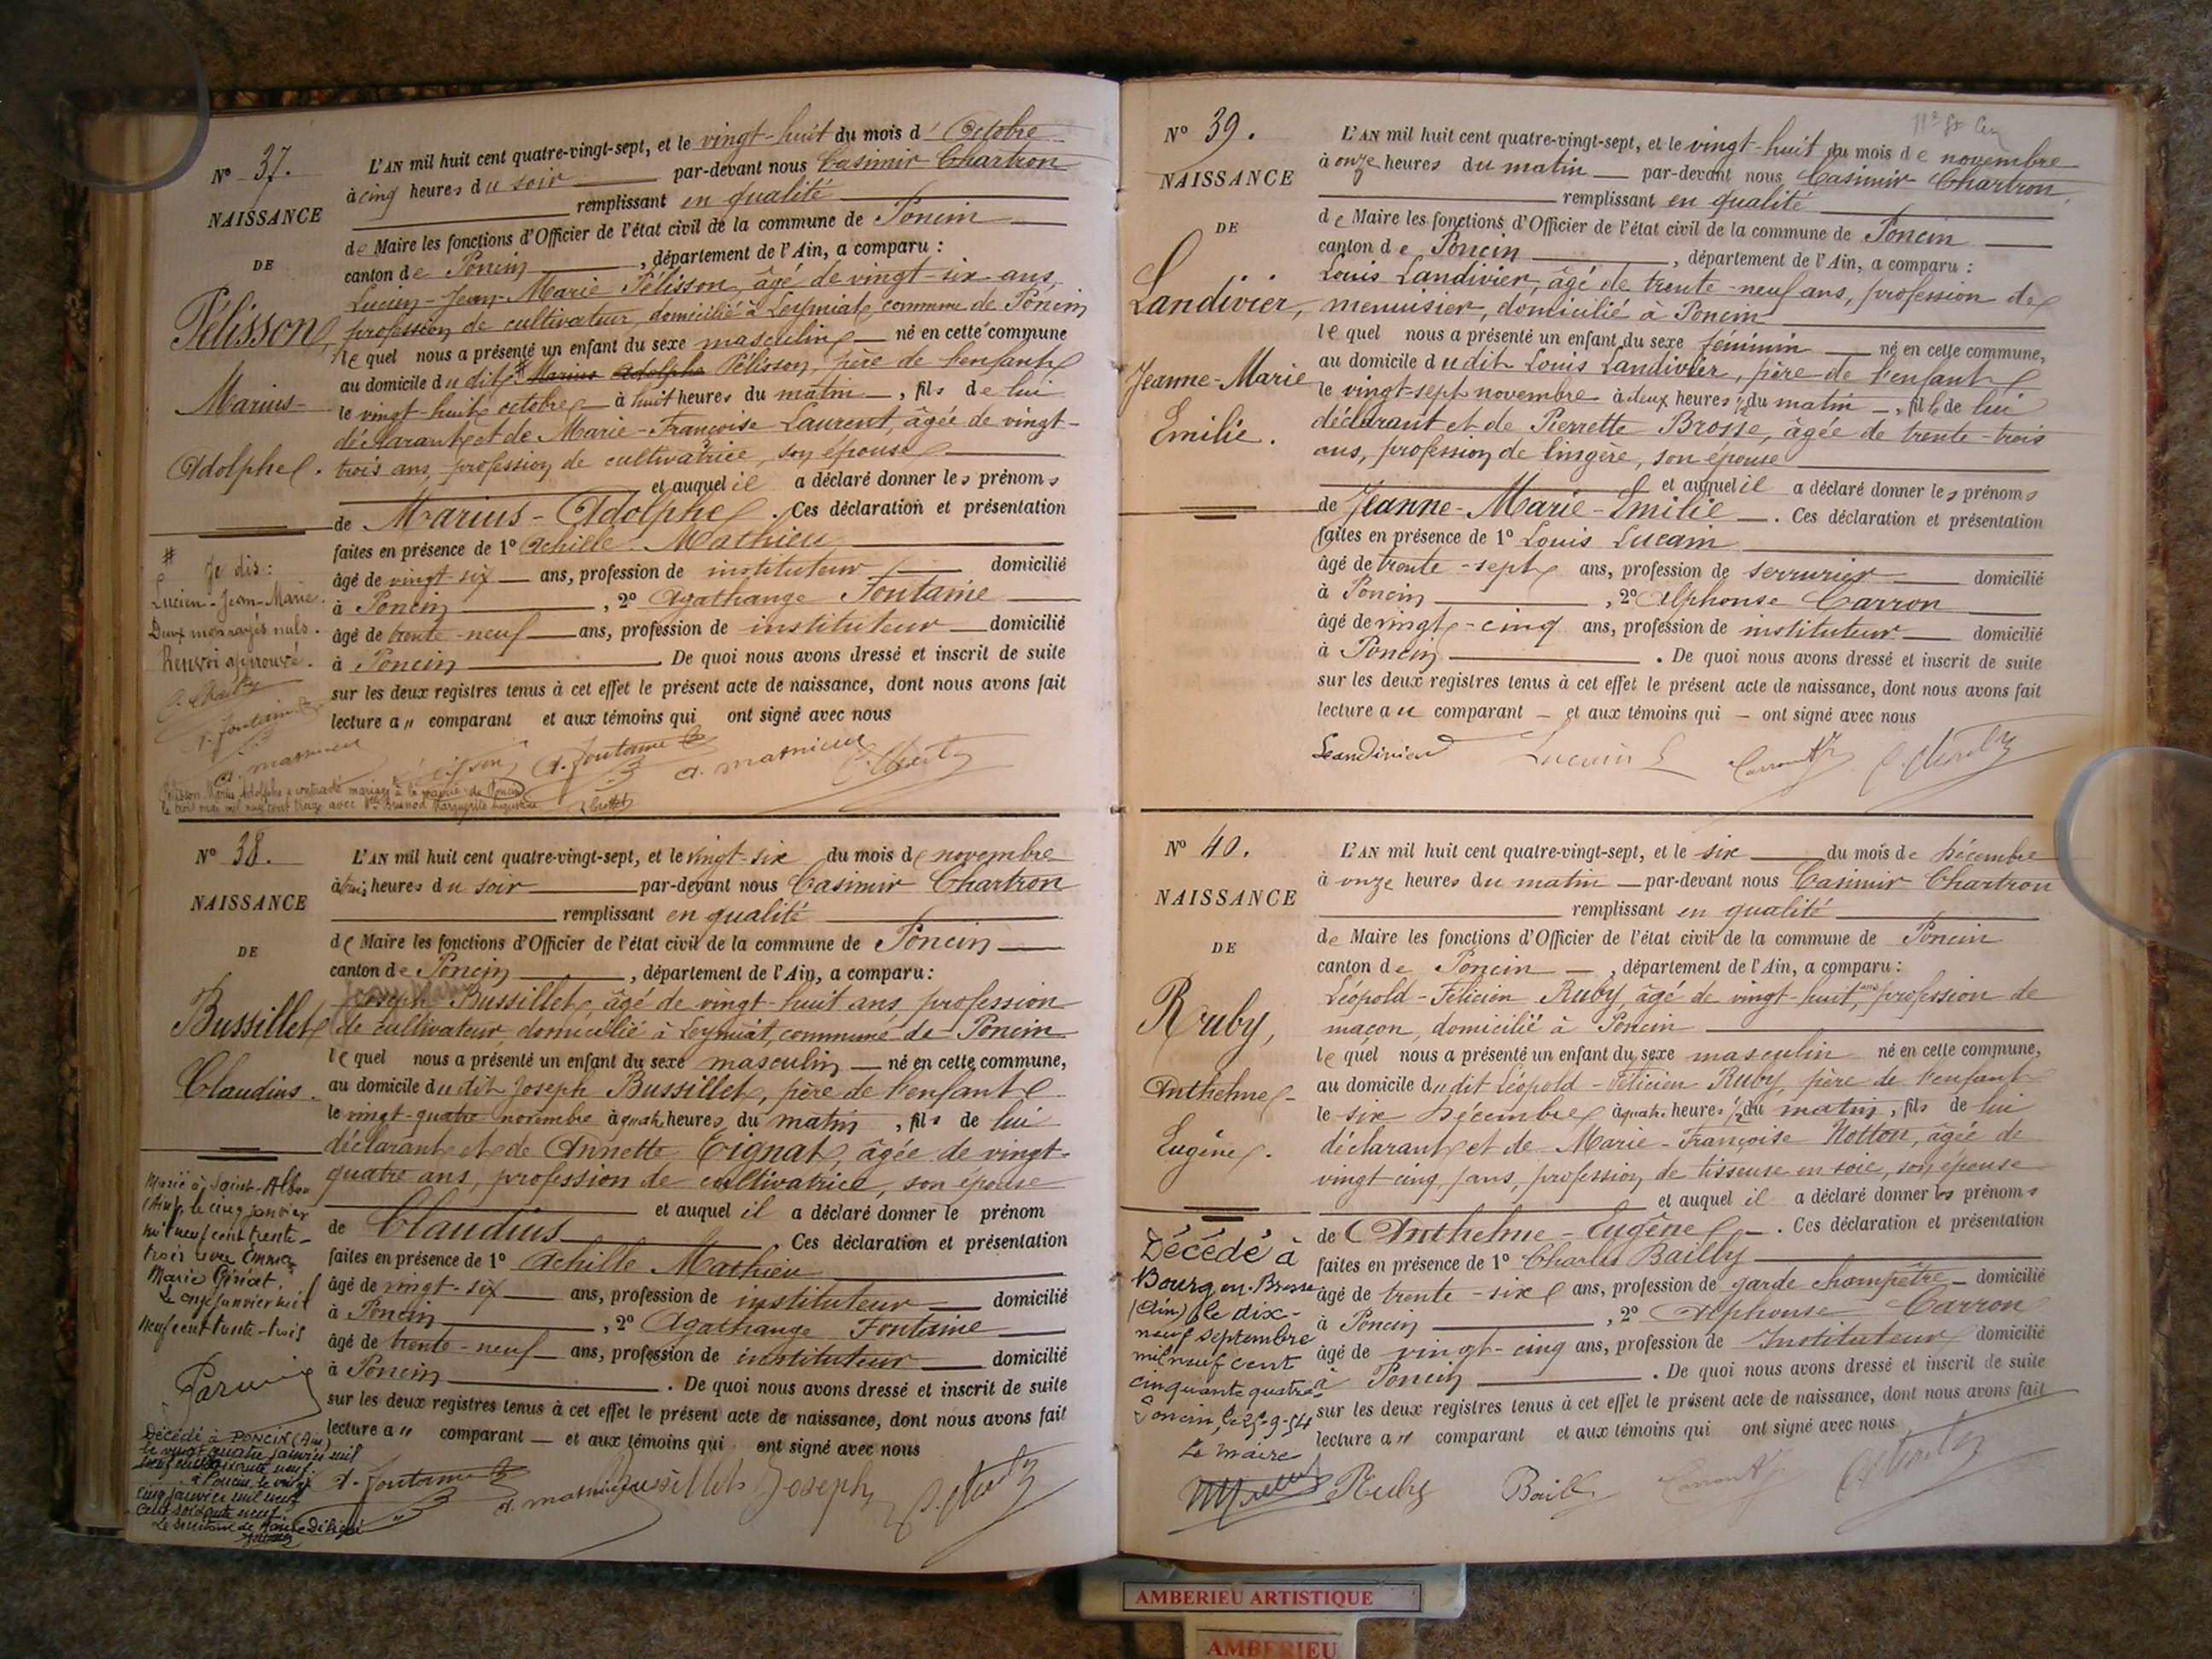 N° 37.
NAISSANCE
DE
Pélisson,
Marius-
Adolphe.
L'AN mil huit cent quatre-vingt-sept, et le vingt-huit du mois d'Octobre
à cinq heures du soir par-devant nous Casimir Chartron
remplissant en qualité
de Maire les fonctions d'Officier de l'état civil de la commune de Poncin
canton de Poncin, département de l'Ain, a comparu :
Lucien-Jean-Marie Pélisson, âgé de vingt-six ans,
profession de cultivateur, domicilié à Leymiat, commune de Poncin
le quel nous a présenté un enfant du sexe masculin né en cette commune
au domicile du dit # Marius Adolphe Pélisson, père de l'enfant
le vingt-huit octobre à huit heures du matin, fils de lui
déclarant et de Marie-Françoise Laurent, âgée de vingt-
trois ans, profession de cultivatrice, son épouse
et auquel il a déclaré donner les prénoms
de Marius-Adolphe. Ces déclaration et présentation
faites en présence de 1° Achille Mathieu
âgé de vingt-six ans, profession de instituteur domicilié
à Poncin, 2° Agathange Fontaine
âgé de trente-neuf ans, profession de instituteur domicilié
à Poncin. De quoi nous avons dressé et inscrit de suite
sur les deux registres tenus à cet effet le présent acte de naissance, dont nous avons fait
lecture au comparant et aux témoins qui ont signé avec nous
# Je dis :
Lucien-Jean-Marie.
Deux mots rayés nuls.
Renvoi approuvé.
A. Fontaine
A. Mathieu
A. Fontaine A. Mathieu
Pélisson Marius Adolphe a contracté mariage à la mairie de Poncin
le trois mai mil neuf cent treize avec Brunod
N° 38.
NAISSANCE
DE
Bussillet
Claudius.
L'AN mil huit cent quatre-vingt-sept, et le vingt-six du mois de novembre
à trois heures du soir par-devant nous Casimir Chartron
remplissant en qualité
de Maire les fonctions d'Officier de l'état civil de la commune de Poncin
canton de Poncin, département de l'Ain, a comparu :
Joseph Bussillet, âgé de vingt-huit ans, profession
de cultivateur, domicilié à Leymiat, commune de Poncin
le quel nous a présenté un enfant du sexe masculin né en cette commune,
au domicile du dit Joseph Bussillet, père de l'enfant
le vingt-quatre novembre à quatre heures du matin, fils de lui
déclarant et de Annette Tignat, âgée de vingt-
quatre ans, profession de cultivatrice, son épouse
et auquel il a déclaré donner le prénom
de Claudius. Ces déclaration et présentation
faites en présence de 1° Achille Mathieu
âgé de vingt-six ans, profession de instituteur domicilié
à Poncin, 2° Agathange Fontaine
âgé de trente-neuf ans, profession de instituteur domicilié
à Poncin. De quoi nous avons dressé et inscrit de suite
sur les deux registres tenus à cet effet le présent acte de naissance, dont nous avons fait
lecture au comparant et aux témoins qui ont signé avec nous
Marié à Saint-Alban
(Ain), le cinq janvier
mil neuf cent trente-
trois avec Emma
Marie Géniat.
Le onze janvier mil
neuf cent trente-trois
Décédé à PONCIN (Ain)
le vingt quatre janvier mil
neuf cent soixante neuf.
à Poncin le vingt
cinq janvier mil neuf
cent soixante neuf.
Le Secrétaire de Mairie Délégué
A. Fontaine A. Mathieu Bussillet Joseph
N° 39.
NAISSANCE
DE
Landivier,
Jeanne-Marie
Emilie.
L'AN mil huit cent quatre-vingt-sept, et le vingt-huit du mois de novembre
à onze heures du matin par-devant nous Casimir Chartron,
remplissant en qualité
de Maire les fonctions d'Officier de l'état civil de la commune de Poncin
canton de Poncin, département de l'Ain, a comparu :
Louis Landivier, âgé de trente-neuf ans, profession de
menuisier, domicilié à Poncin
le quel nous a présenté un enfant du sexe féminin né en cette commune,
au domicile du dit Louis Landivier, père de l'enfant
le vingt-sept novembre à deux heures 1/2 du matin, fille de lui
déclarant et de Pierrette Brosse, âgée de trente-trois
ans, profession de lingère, son épouse
et auquel il a déclaré donner les prénoms
de Jeanne-Marie-Emilie. Ces déclaration et présentation
faites en présence de 1° Louis Lucain
âgé de trente-sept ans, profession de serrurier domicilié
à Poncin, 2° Alphonse Carron
âgé de vingt-cinq ans, profession de instituteur domicilié
à Poncin. De quoi nous avons dressé et inscrit de suite
sur les deux registres tenus à cet effet le présent acte de naissance, dont nous avons fait
lecture au comparant et aux témoins qui ont signé avec nous
Landivier Lucain L
N° 40.
NAISSANCE
DE
Ruby,
Anthelme-
Eugène.
L'AN mil huit cent quatre-vingt-sept, et le six du mois de Décembre
à onze heures du matin par-devant nous Casimir Chartron
remplissant en qualité
de Maire les fonctions d'Officier de l'état civil de la commune de Poncin
canton de Poncin, département de l'Ain, a comparu :
Léopold-Félicien Ruby, âgé de vingt-huit ans, profession de
maçon, domicilié à Poncin
le quel nous a présenté un enfant du sexe masculin né en cette commune,
au domicile du dit Léopold-Félicien Ruby, père de l'enfant
le six Décembre à quatre heures 1/2 du matin, fils de lui
déclarant et de Marie-Françoise Notton, âgée de
vingt cinq ans, profession de tisseuse en soie, son épouse
et auquel il a déclaré donner les prénoms
de Anthelme-Eugène. Ces déclaration et présentation
faites en présence de 1° Charles Bailly
âgé de trente-six ans, profession de garde champêtre domicilié
à Poncin, 2° Alphonse Carron
âgé de vingt-cinq ans, profession de Instituteur domicilié
à Poncin. De quoi nous avons dressé et inscrit de suite
sur les deux registres tenus à cet effet le présent acte de naissance, dont nous avons fait
lecture au comparant et aux témoins qui ont signé avec nous
Décédé à
Bourg en Bresse
(Ain) le dix-
neuf septembre
mil neuf cent
cinquante quatre
Poncin, le 25-9-54
Le maire
Ruby Bailly
AMBERIEU ARTISTIQUE
AMBERIEU